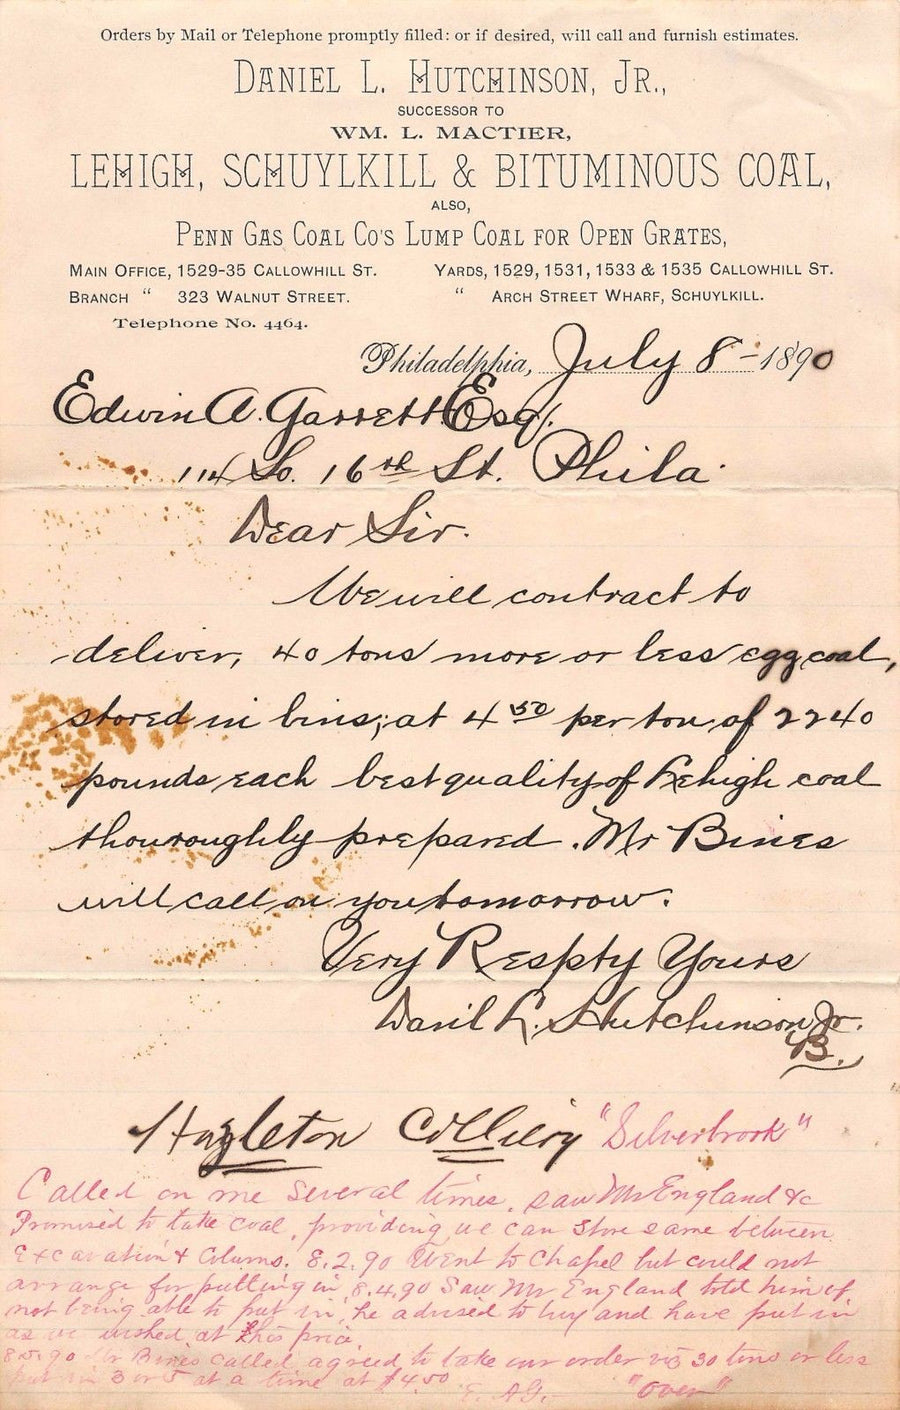 Orders by Mail or Telephone promptly filled: or if desired, will call and furnish estimates.
DANIEL L. HUTCHINSON, JR.,
SUCCESSOR TO
WM. L. MACTIER,
LEHIGH, SCHUYLKILL & BITUMINOUS COAL,
ALSO,
PENN GAS COAL CO'S LUMP COAL FOR OPEN GRATES,
MAIN OFFICE, 1529-35 CALLOWHILL ST.
BRANCH " 323 WALNUT STREET.
Telephone No. 4464.
YARDS, 1529, 1531, 1533 & 1535 CALLOWHILL ST.
" ARCH STREET WHARF, SCHUYLKILL.
Philadelphia, July 8 - 1890
Edwin A. Garrett Esq.
114 So. 16th St. Phila.
Dear Sir.
We will contract to
deliver, 40 tons more or less egg coal,
stored in bins, at 4 50 per ton of 2240
pounds each best quality of Lehigh coal
thouroughly prepared. Mr Bines
will call on you tomorrow.
Very Respty Yours
Danil L. Hutchinson Jr.
B.
Hazleton Colliery "Silverbrook"
Called on me several times. saw Mr England &c
Promised to take coal, providing we can store same between
Excavation & Colums. 8.2.90 Went to Chapel but could not
arrange for putting in 8.4.90 Saw Mr England told him of
not being able to put in, he advised to buy and have put in
as we wished at this price
8.5.90 Mr Bines called agreed to take our order 30 tons or less
put in 3 or 5 at a time at $4.50
E. A G. "Over"